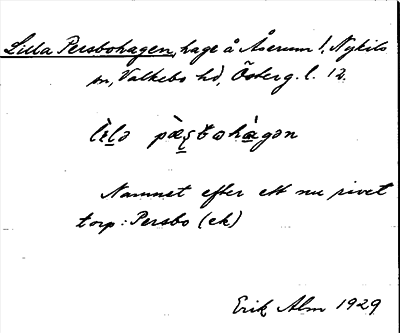 Lilla Persbohagen, hage å Åserum 1, Nykils
sn, Valkebo hd, Österg. l. 12.
lɩ̀lə pæ̀ʂbωhàgən
Namnet efter ett nu rivet
torp: Persbo (ek)
Erik Alm 1929